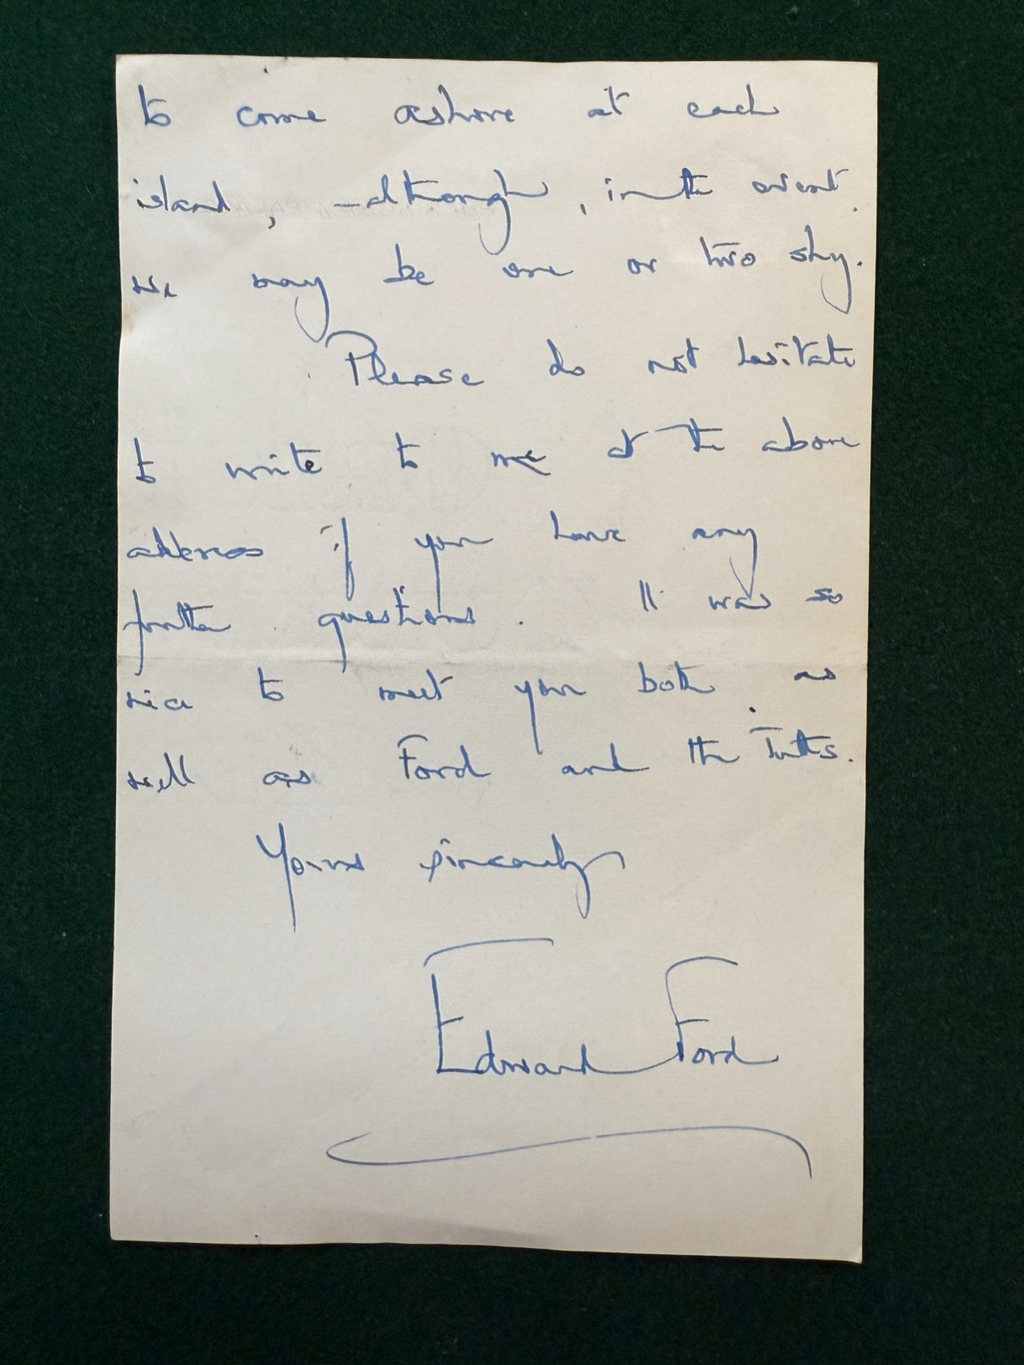 to come ashore at each
island, - although, in the event,
we may be one or two shy.
Please do not hesitate
to write to me at the above
address if you have any
further questions. It was so
nice to meet you both, as
well as Ford and the Tutts.
Yours sincerely
Edward Ford